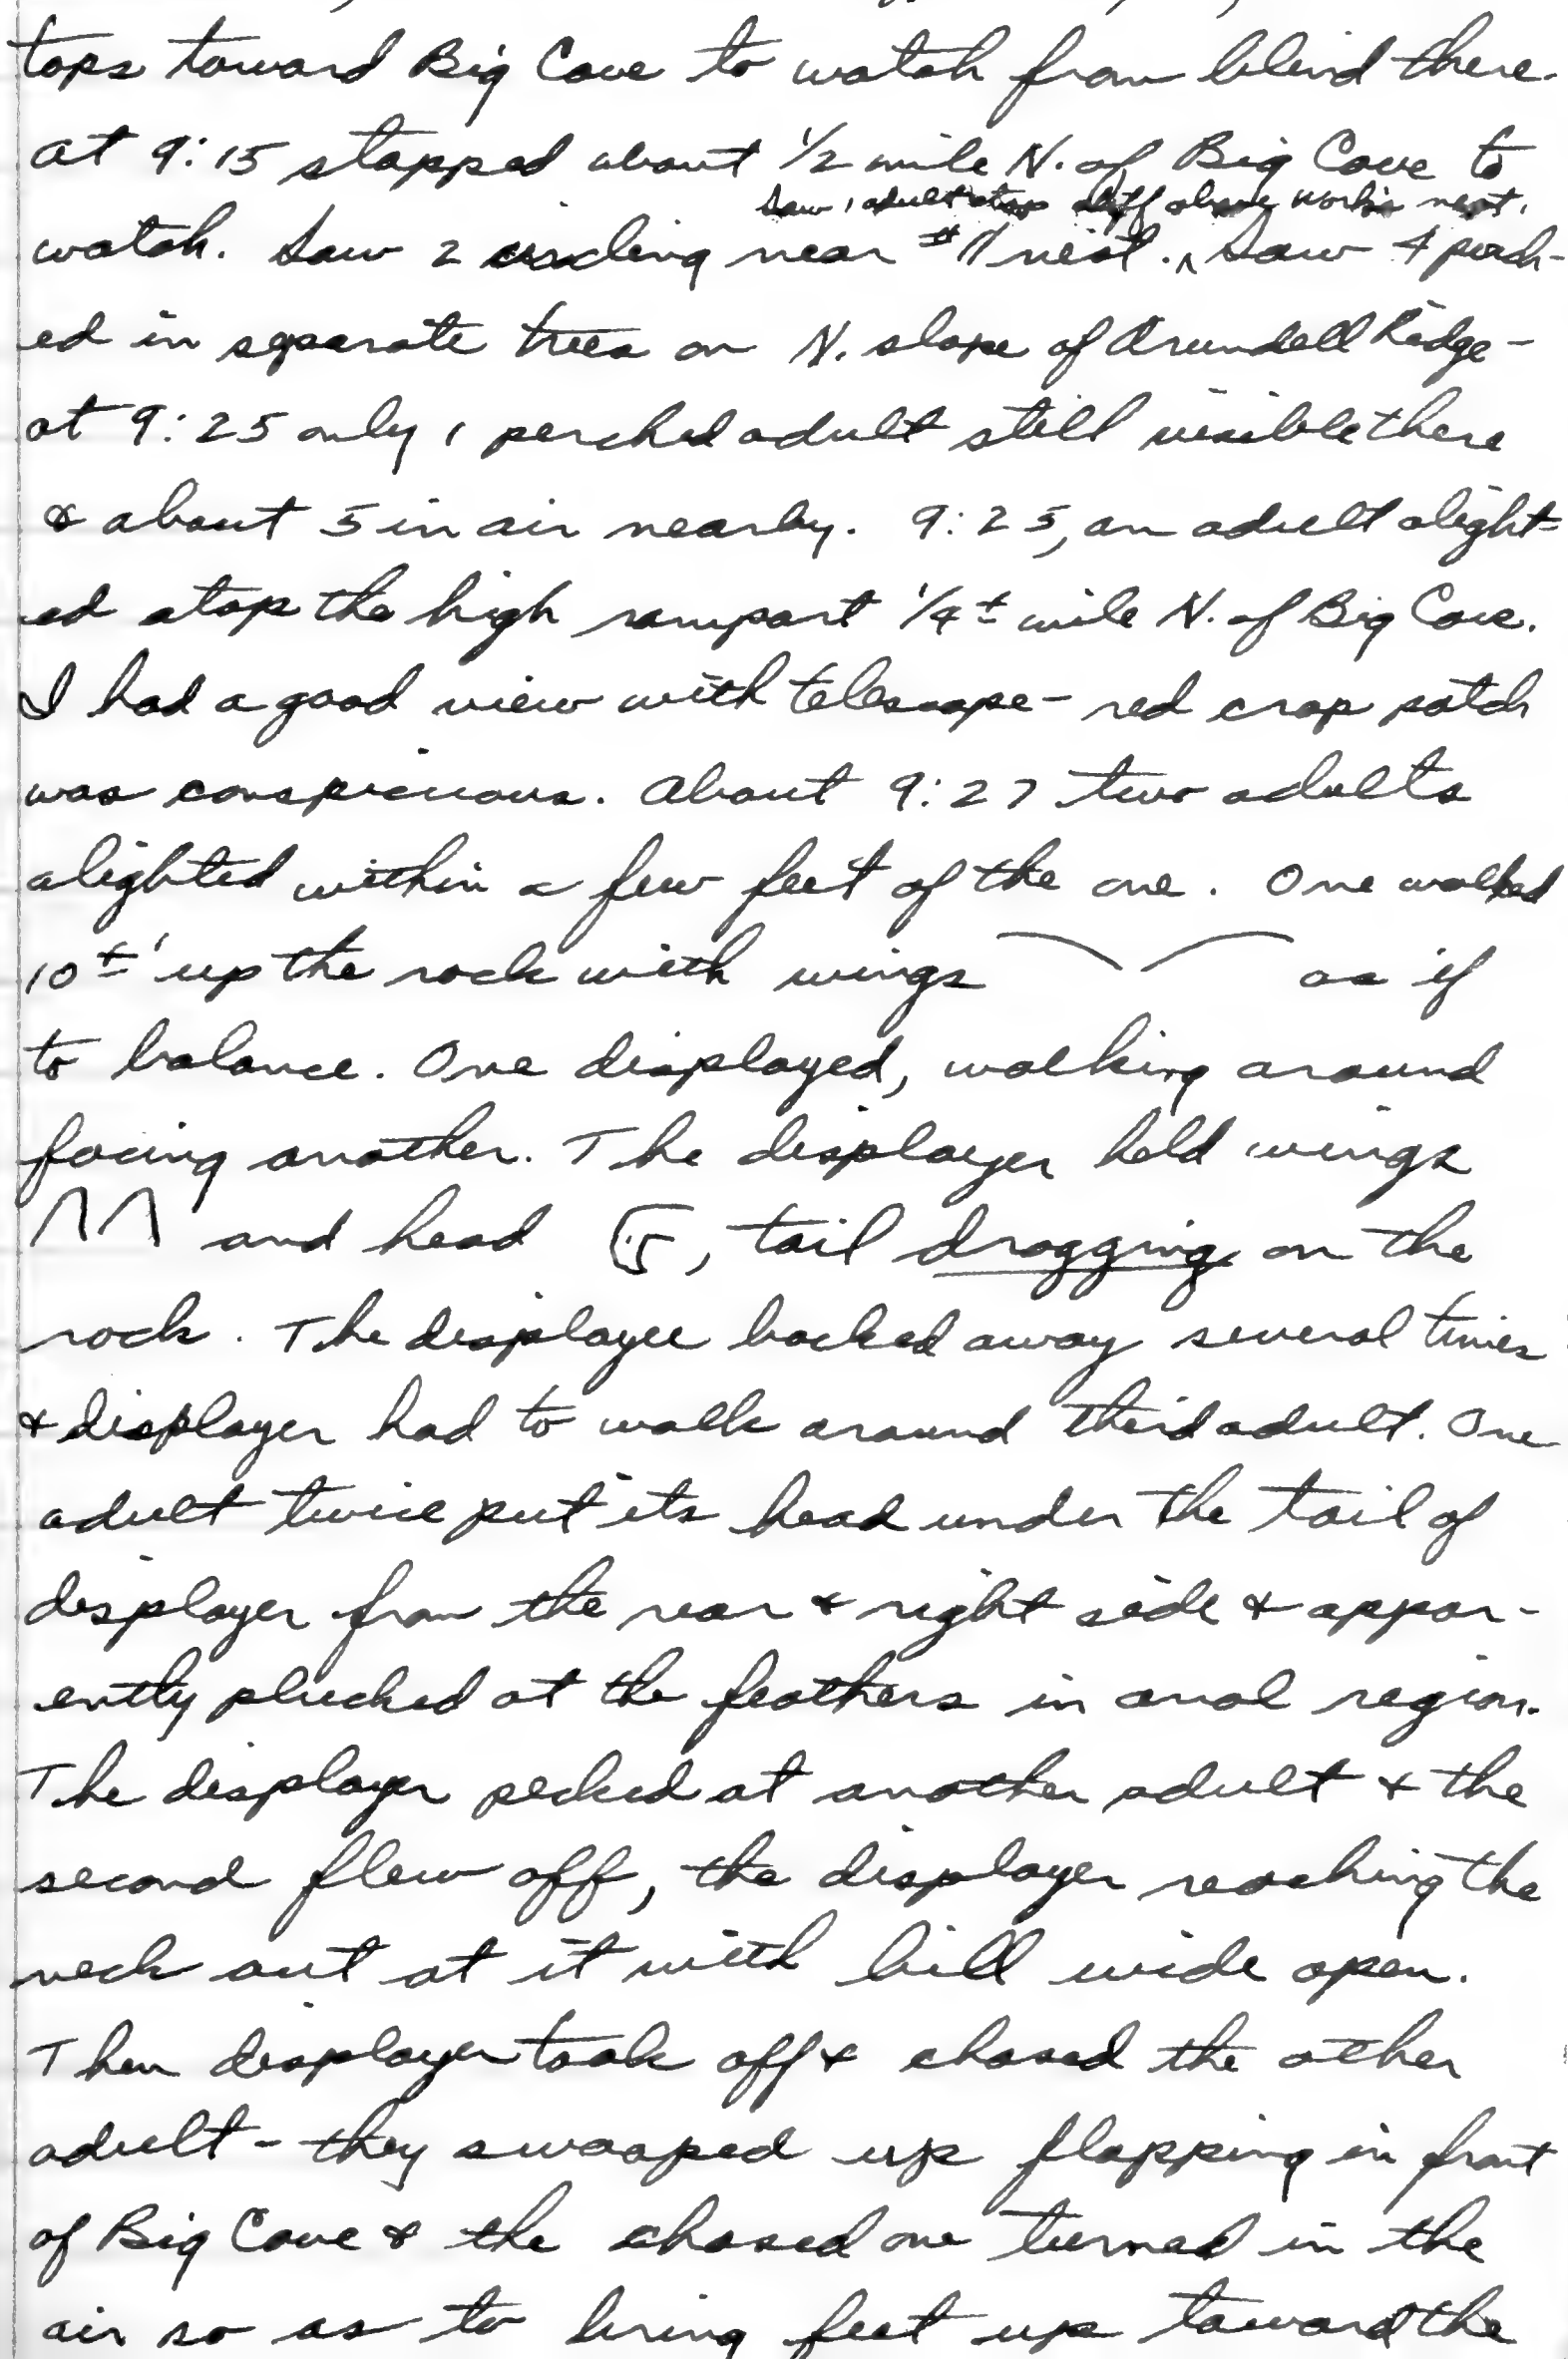 tops toward Big Cove to watch from blind there.
At 9:15 stopped about 1/2 mile N. of Big Cove to
Saw 1 adult atop cliff above nest.
watch. Saw 2 circling near #11 nest. ^ Saw 4 perch-
ed in separate trees on N. slope of Arundell Ridge -
at 9:25 only 1 perched adult still visible there
& about 5 in air nearby. 9:25, an adult alight-
ed atop the high rampart 1/4± mile N. of Big Cove.
I had a good view with telescope - red crop patch
was conspicuous. About 9:27 two adults
alighted within a few feet of the one. One walked
10±' up the rock with wings as if
to balance. One displayed, walking around
facing another. The displayer held wings
and head , tail dragging on the
rock. The displayee backed away several times
& displayer had to walk around third adult. One
adult twice put its head under the tail of
displayer from the rear & right side & appar-
ently plucked at the feathers in anal region.
The displayer pecked at another adult & the
second flew off, the displayer reaching the
neck out at it with bill wide open.
Then displayer took off & chased the other
adult - they swooped up flapping in front
of Big Cove & the chased one turned in the
air so as to bring feet up toward the